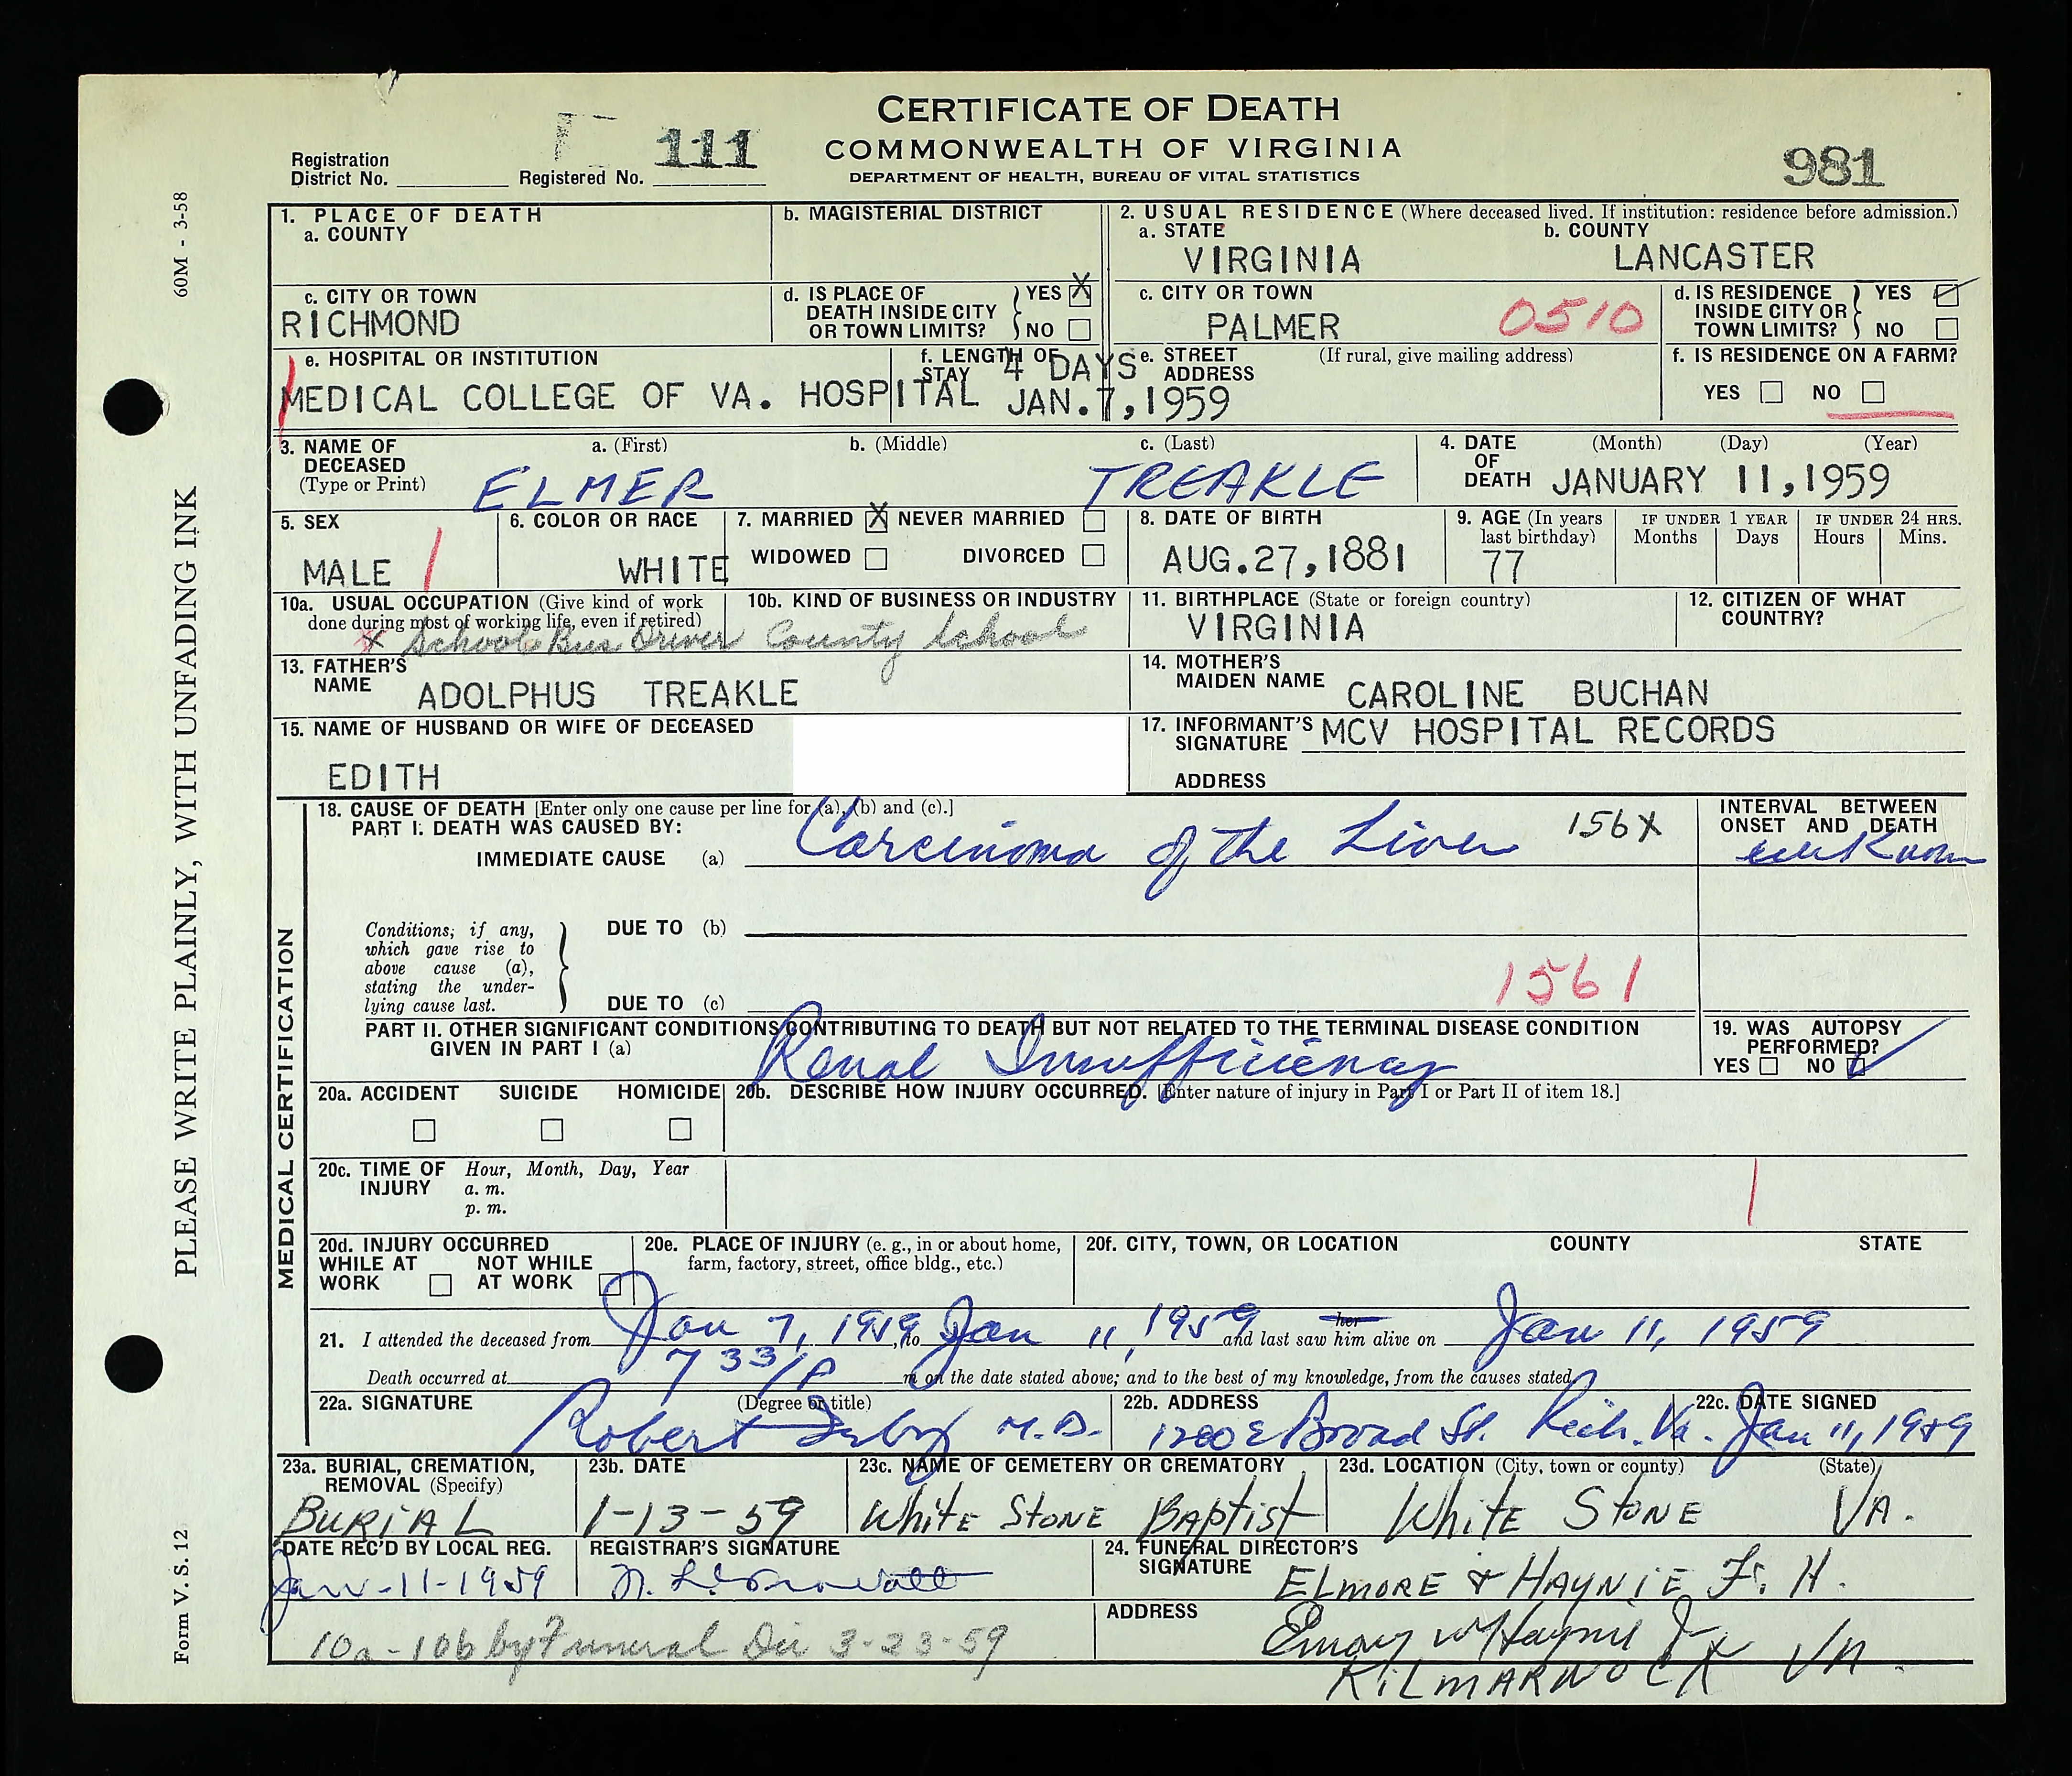 CERTIFICATE OF DEATH
COMMONWEALTH OF VIRGINIA
DEPARTMENT OF HEALTH, BUREAU OF VITAL STATISTICS
Registration District No.
Registered No. 111
981
60M - 3-58
PLEASE WRITE PLAINLY, WITH UNFADING INK
Form V. S. 12
1. PLACE OF DEATH
a. COUNTY
b. MAGISTERIAL DISTRICT
2. USUAL RESIDENCE (Where deceased lived. If institution: residence before admission.)
a. STATE VIRGINIA
b. COUNTY LANCASTER
c. CITY OR TOWN
RICHMOND
d. IS PLACE OF DEATH INSIDE CITY OR TOWN LIMITS? YES X NO
c. CITY OR TOWN
PALMER 0510
d. IS RESIDENCE INSIDE CITY OR TOWN LIMITS? YES NO
e. HOSPITAL OR INSTITUTION
MEDICAL COLLEGE OF VA. HOSPITAL
f. LENGTH OF STAY 4 DAYS
JAN.7,1959
e. STREET ADDRESS (If rural, give mailing address)
f. IS RESIDENCE ON A FARM?
YES NO
3. NAME OF DECEASED (Type or Print)
a. (First) b. (Middle) c. (Last)
ELMER TREAKLE
4. DATE OF DEATH (Month) (Day) (Year)
JANUARY 11,1959
5. SEX
MALE
6. COLOR OR RACE
WHITE
7. MARRIED X NEVER MARRIED
WIDOWED DIVORCED
8. DATE OF BIRTH
AUG.27,1881
9. AGE (In years last birthday)
77
IF UNDER 1 YEAR
Months Days
IF UNDER 24 HRS.
Hours Mins.
10a. USUAL OCCUPATION (Give kind of work done during most of working life, even if retired)
x School Bus Driver
10b. KIND OF BUSINESS OR INDUSTRY
County School
11. BIRTHPLACE (State or foreign country)
VIRGINIA
12. CITIZEN OF WHAT COUNTRY?
13. FATHER'S NAME
ADOLPHUS TREAKLE
14. MOTHER'S MAIDEN NAME
CAROLINE BUCHAN
15. NAME OF HUSBAND OR WIFE OF DECEASED
EDITH
17. INFORMANT'S SIGNATURE MCV HOSPITAL RECORDS
ADDRESS
MEDICAL CERTIFICATION
18. CAUSE OF DEATH [Enter only one cause per line for (a), (b) and (c).]
PART I. DEATH WAS CAUSED BY:
IMMEDIATE CAUSE (a) Carcinoma of the Liver 156X
INTERVAL BETWEEN ONSET AND DEATH
unknown
Conditions, if any, which gave rise to above cause (a), stating the underlying cause last.
DUE TO (b)
DUE TO (c)
1561
PART II. OTHER SIGNIFICANT CONDITIONS CONTRIBUTING TO DEATH BUT NOT RELATED TO THE TERMINAL DISEASE CONDITION GIVEN IN PART I (a)
Renal Insufficiency
19. WAS AUTOPSY PERFORMED?
YES NO
20a. ACCIDENT SUICIDE HOMICIDE
20b. DESCRIBE HOW INJURY OCCURRED. [Enter nature of injury in Part I or Part II of item 18.]
20c. TIME OF INJURY Hour, Month, Day, Year
a. m.
p. m.
20d. INJURY OCCURRED
WHILE AT WORK NOT WHILE AT WORK
20e. PLACE OF INJURY (e. g., in or about home, farm, factory, street, office bldg., etc.)
20f. CITY, TOWN, OR LOCATION COUNTY STATE
21. I attended the deceased from Jan 7, 1959, to Jan 11, 1959 and last saw her him alive on Jan 11, 1959
Death occurred at 7 33/P m on the date stated above; and to the best of my knowledge, from the causes stated.
22a. SIGNATURE (Degree or title)
Robert M.D.
22b. ADDRESS
1200 E Broad St. Rich. Va.
22c. DATE SIGNED
Jan 11, 1959
23a. BURIAL, CREMATION, REMOVAL (Specify)
BURIAL
23b. DATE
1-13-59
23c. NAME OF CEMETERY OR CREMATORY
White Stone Baptist
23d. LOCATION (City, town or county) (State)
White Stone VA.
DATE REC'D BY LOCAL REG.
Jan-11-1959
REGISTRAR'S SIGNATURE
24. FUNERAL DIRECTOR'S SIGNATURE
ELMORE & HAYNIE F. H.
ADDRESS
Emory W Haynie Jr
KILMARNOCK VA.
10a-10b by Funeral Dir 3-23-59